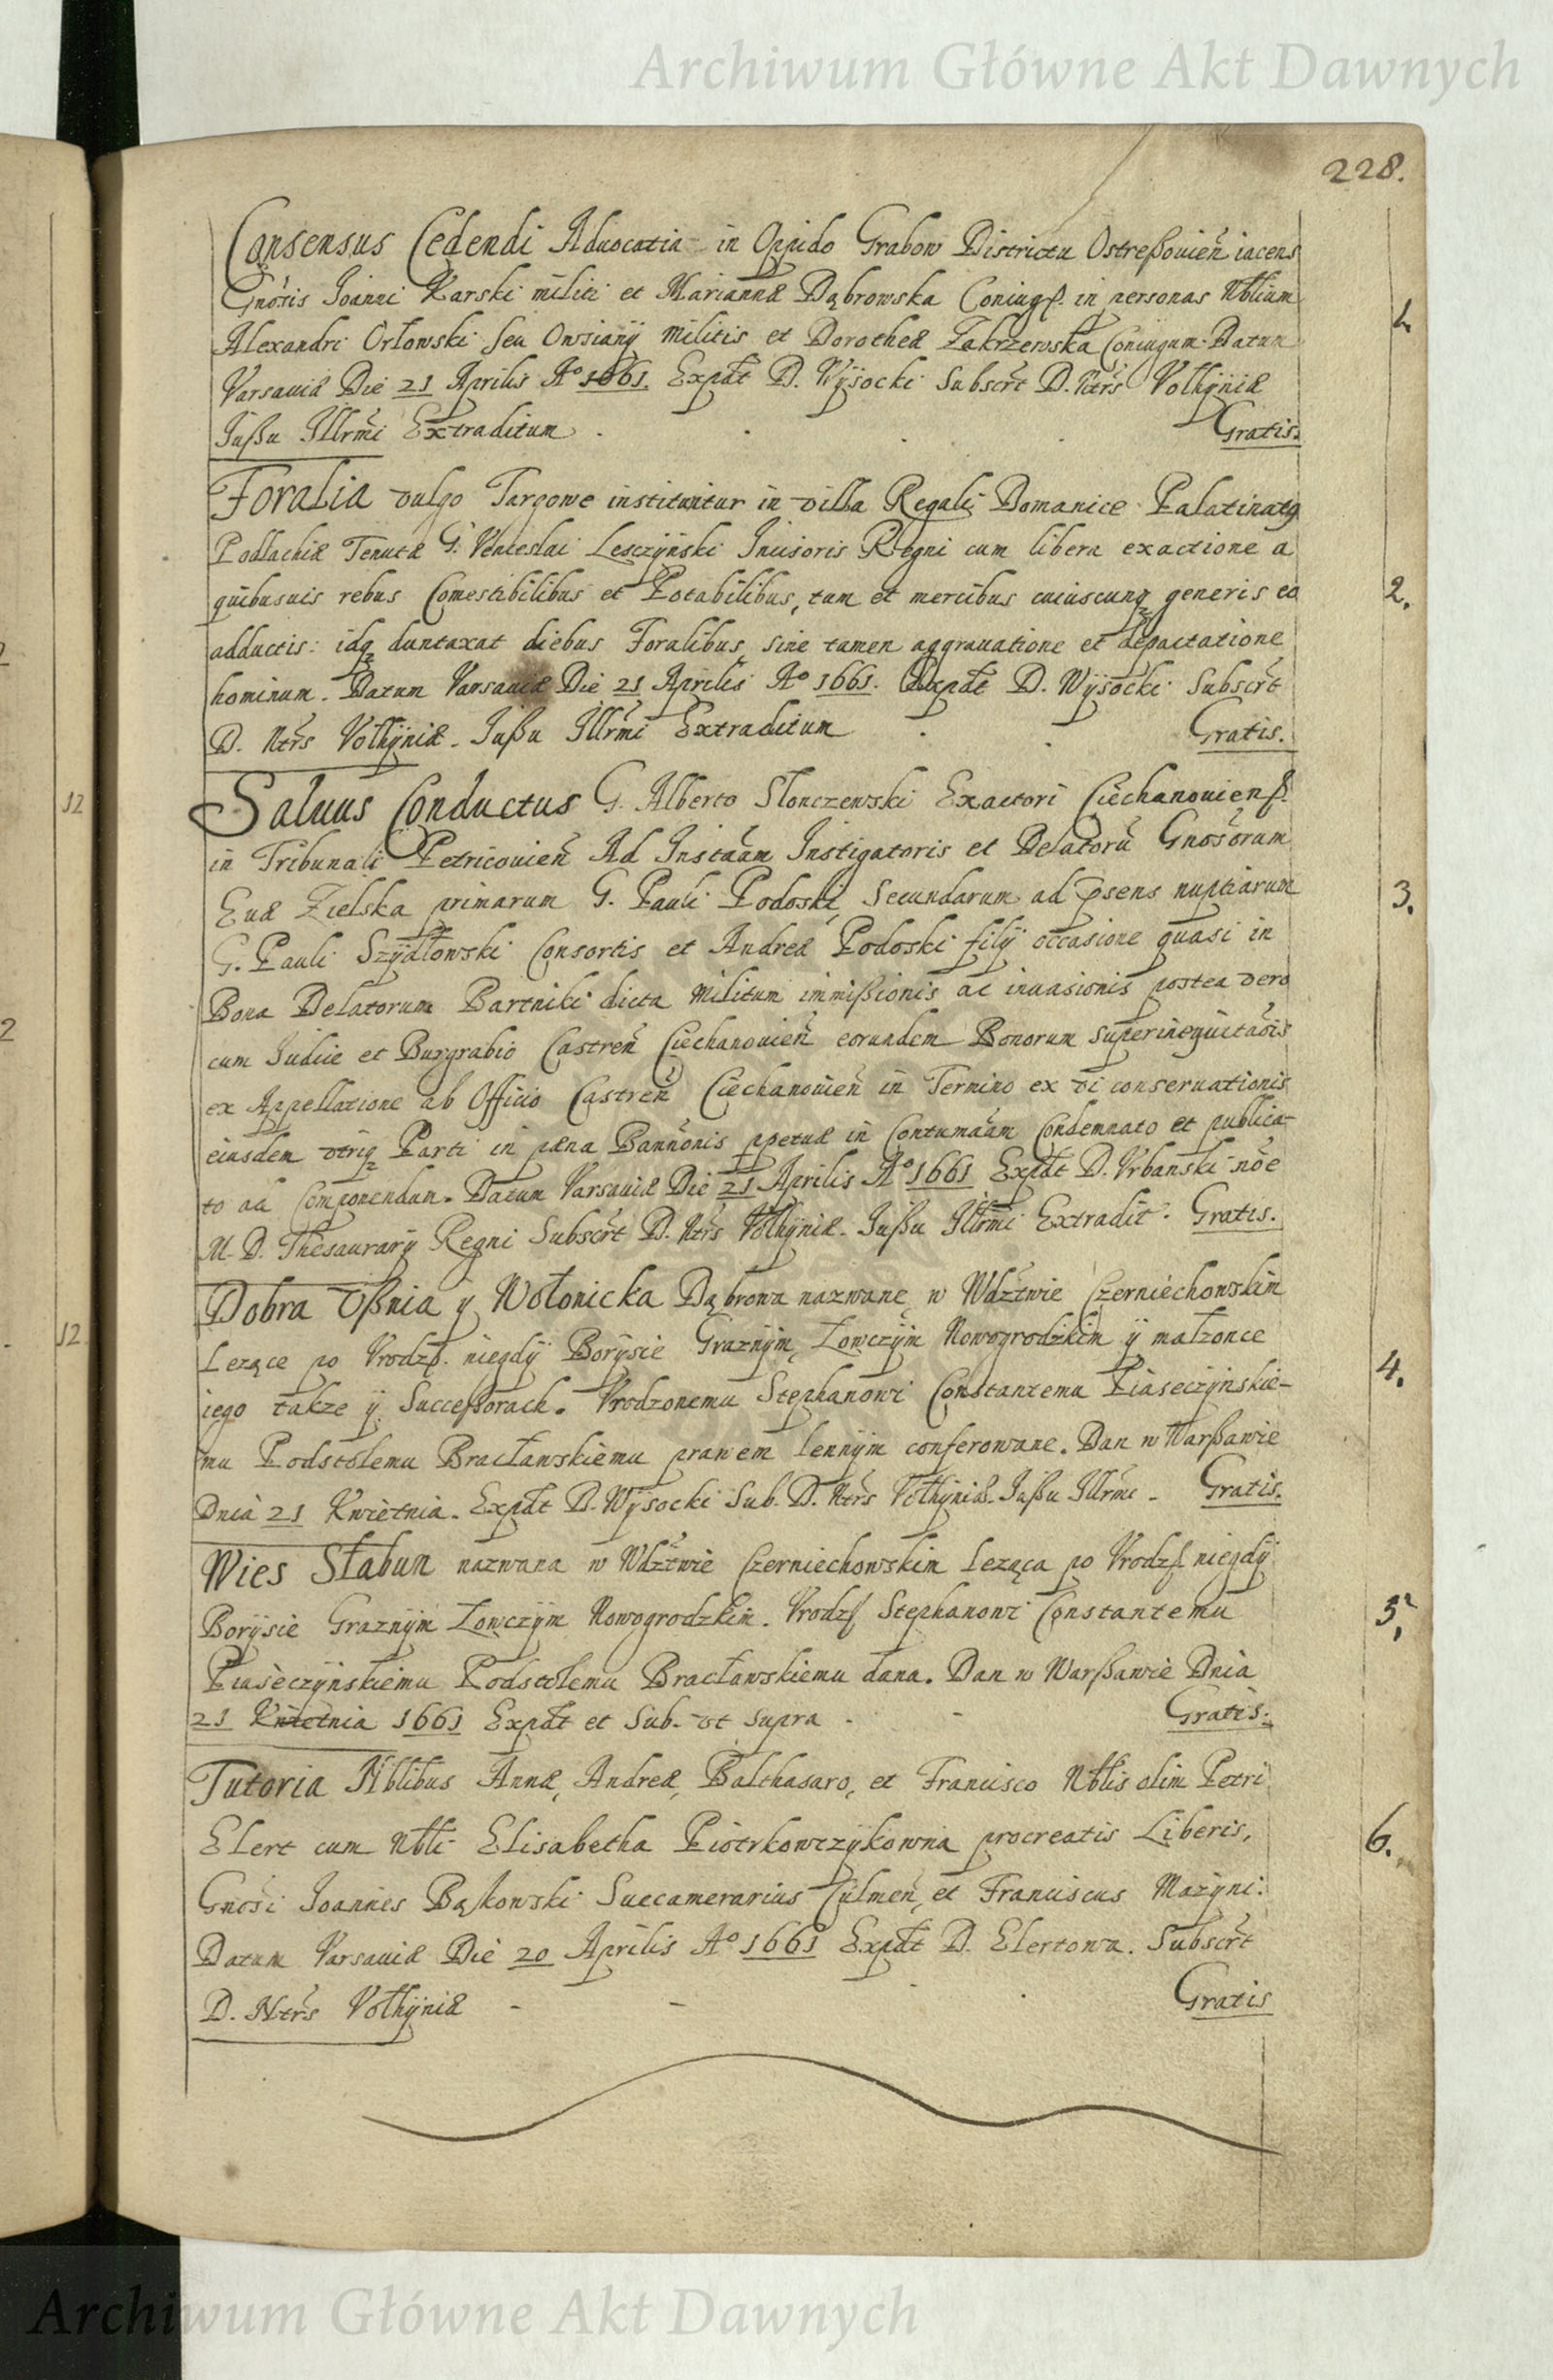 Archiwum Główne Akt Dawnych
228.
Consensus Cedendi Aduocatia in Oppido Grabow Districtu Ostreßouien̄ iacens
Gnōsis Joanni Karski militi et Mariannæ Dąbrowska Coniugß. in personas Nbliũm
Alexandri Orłowski seu Owsiany militis et Dorotheæ Zakrzewska Coniugum. Datum
Varsauiæ Die 21 Aprilis Aº 1661. Expdt D. Wÿsocki Subscrt D. Ntrs Volhÿniæ
Jußu Jllrmi Extraditum Gratis.
1.
Foralia vulgo Targowe instituntur in villa Regali Domanice Palatinatq
Podlachiæ Tenutæ G. Venceslai Lesczÿnski Incisoris Regni cum libera exactione a
quibusuis rebus Comestibilibus et Potabilibus, tum et mercibus cuiuscunqꝫ generis eo
adductis: idqꝫ duntaxat diebus Foralibus, sine tamen aggrauatione et depactatione
hominum. Datum Varsauiæ Die 21 Aprilis Aº 1661. Expdt D. Wÿsocki Subscrt
D. Ntrs Volhÿniæ. Jußu Jllrmi Extraditum Gratis.
2.
Saluus Conductus G. Alberto Slonczewski Exactori Ciechanouienß.
in Tribunali Petricouien̄ Ad Instāam Instigatoris et Delatorū Gnosorum
Euæ Zielska primarum G. Pauli Podoski, Secundarum ad p̄sens nuptiarum
G. Pauli Szÿdłowski Consortis et Andreæ Podoski filÿ occasione quasi in
Bona Delatorum Bartniki dicta Militum immißionis ac inuasionis postea vero
cum Iudice et Burgrabio Castren̄ Ciechanouien̄ eorundem Bonorum superinequitāois
ex Appellatione ab Officio Castren̄ Ciechanouien̄ in Termino ex vi conseruationis
eiusdem vtriqꝫ Parti in pæna Bannonis ppetuæ in Contumāam Condemnato et publica-
to ad Componendum. Datum Varsauiæ Die 21 Aprilis Aº 1661 Expdt D. Vrbanski nōe
M. D. Thesaurarÿ Regni Subscrt D. Ntrs Volhÿniæ. Jußu Jllrmi Extradit. Gratis.
3.
Dobra Vßnia y Wołonicka Dąbrowa nazwane, w Wdztwie Czerniechowskim
Lezące po Vrodzß. niegdÿ Borÿsie Graznÿm, Łowczÿm Nowogrodzkim ÿ małzonce
iego takze ÿ Succeßorach. Vrodzonemu Stephanowi Constantemu Piaseczÿnskie-
mu Podstolemu Bracławskiemu prawem lennÿm conferowane. Dan w Warßawie
Dnia 21 Kwietnia. Expdt D. Wÿsocki Sub. D. Ntrs Volhÿniæ. Jußu Jllrmi Gratis.
4.
Wies Słabun nazwana w Wdztwie Czerniechowskim Leząca po Vrodzß niegdÿ
Borÿsie Graznÿm Łowczÿm Nowogrodzkim. Vrodzß Stephanowi Constantemu
Piaseczÿnskiemu Podstolemu Bracławskiemu dana. Dan w Warßawie Dnia
21 Kwietnia 1661 Expdt et Sub. vt supra Gratis.
5.
Tutoria Nblibus Annæ, Andreæ, Balthasaro, et Francisco Nblis olim Petri
Elert cum Nbli Elisabetha Piotrkowczÿkowna procreatis Liberis,
Gnosi Joannes Bąkowski Succamerarius Culmen̄, et Franciscus Mazÿni.
Datum Varsauiæ Die 20 Aprilis Aº 1661 Expdt D. Elertowa. Subscrt
D. Ntrs Volhÿniæ Gratis
6.
12
2
12
Archiwum Główne Akt Dawnych